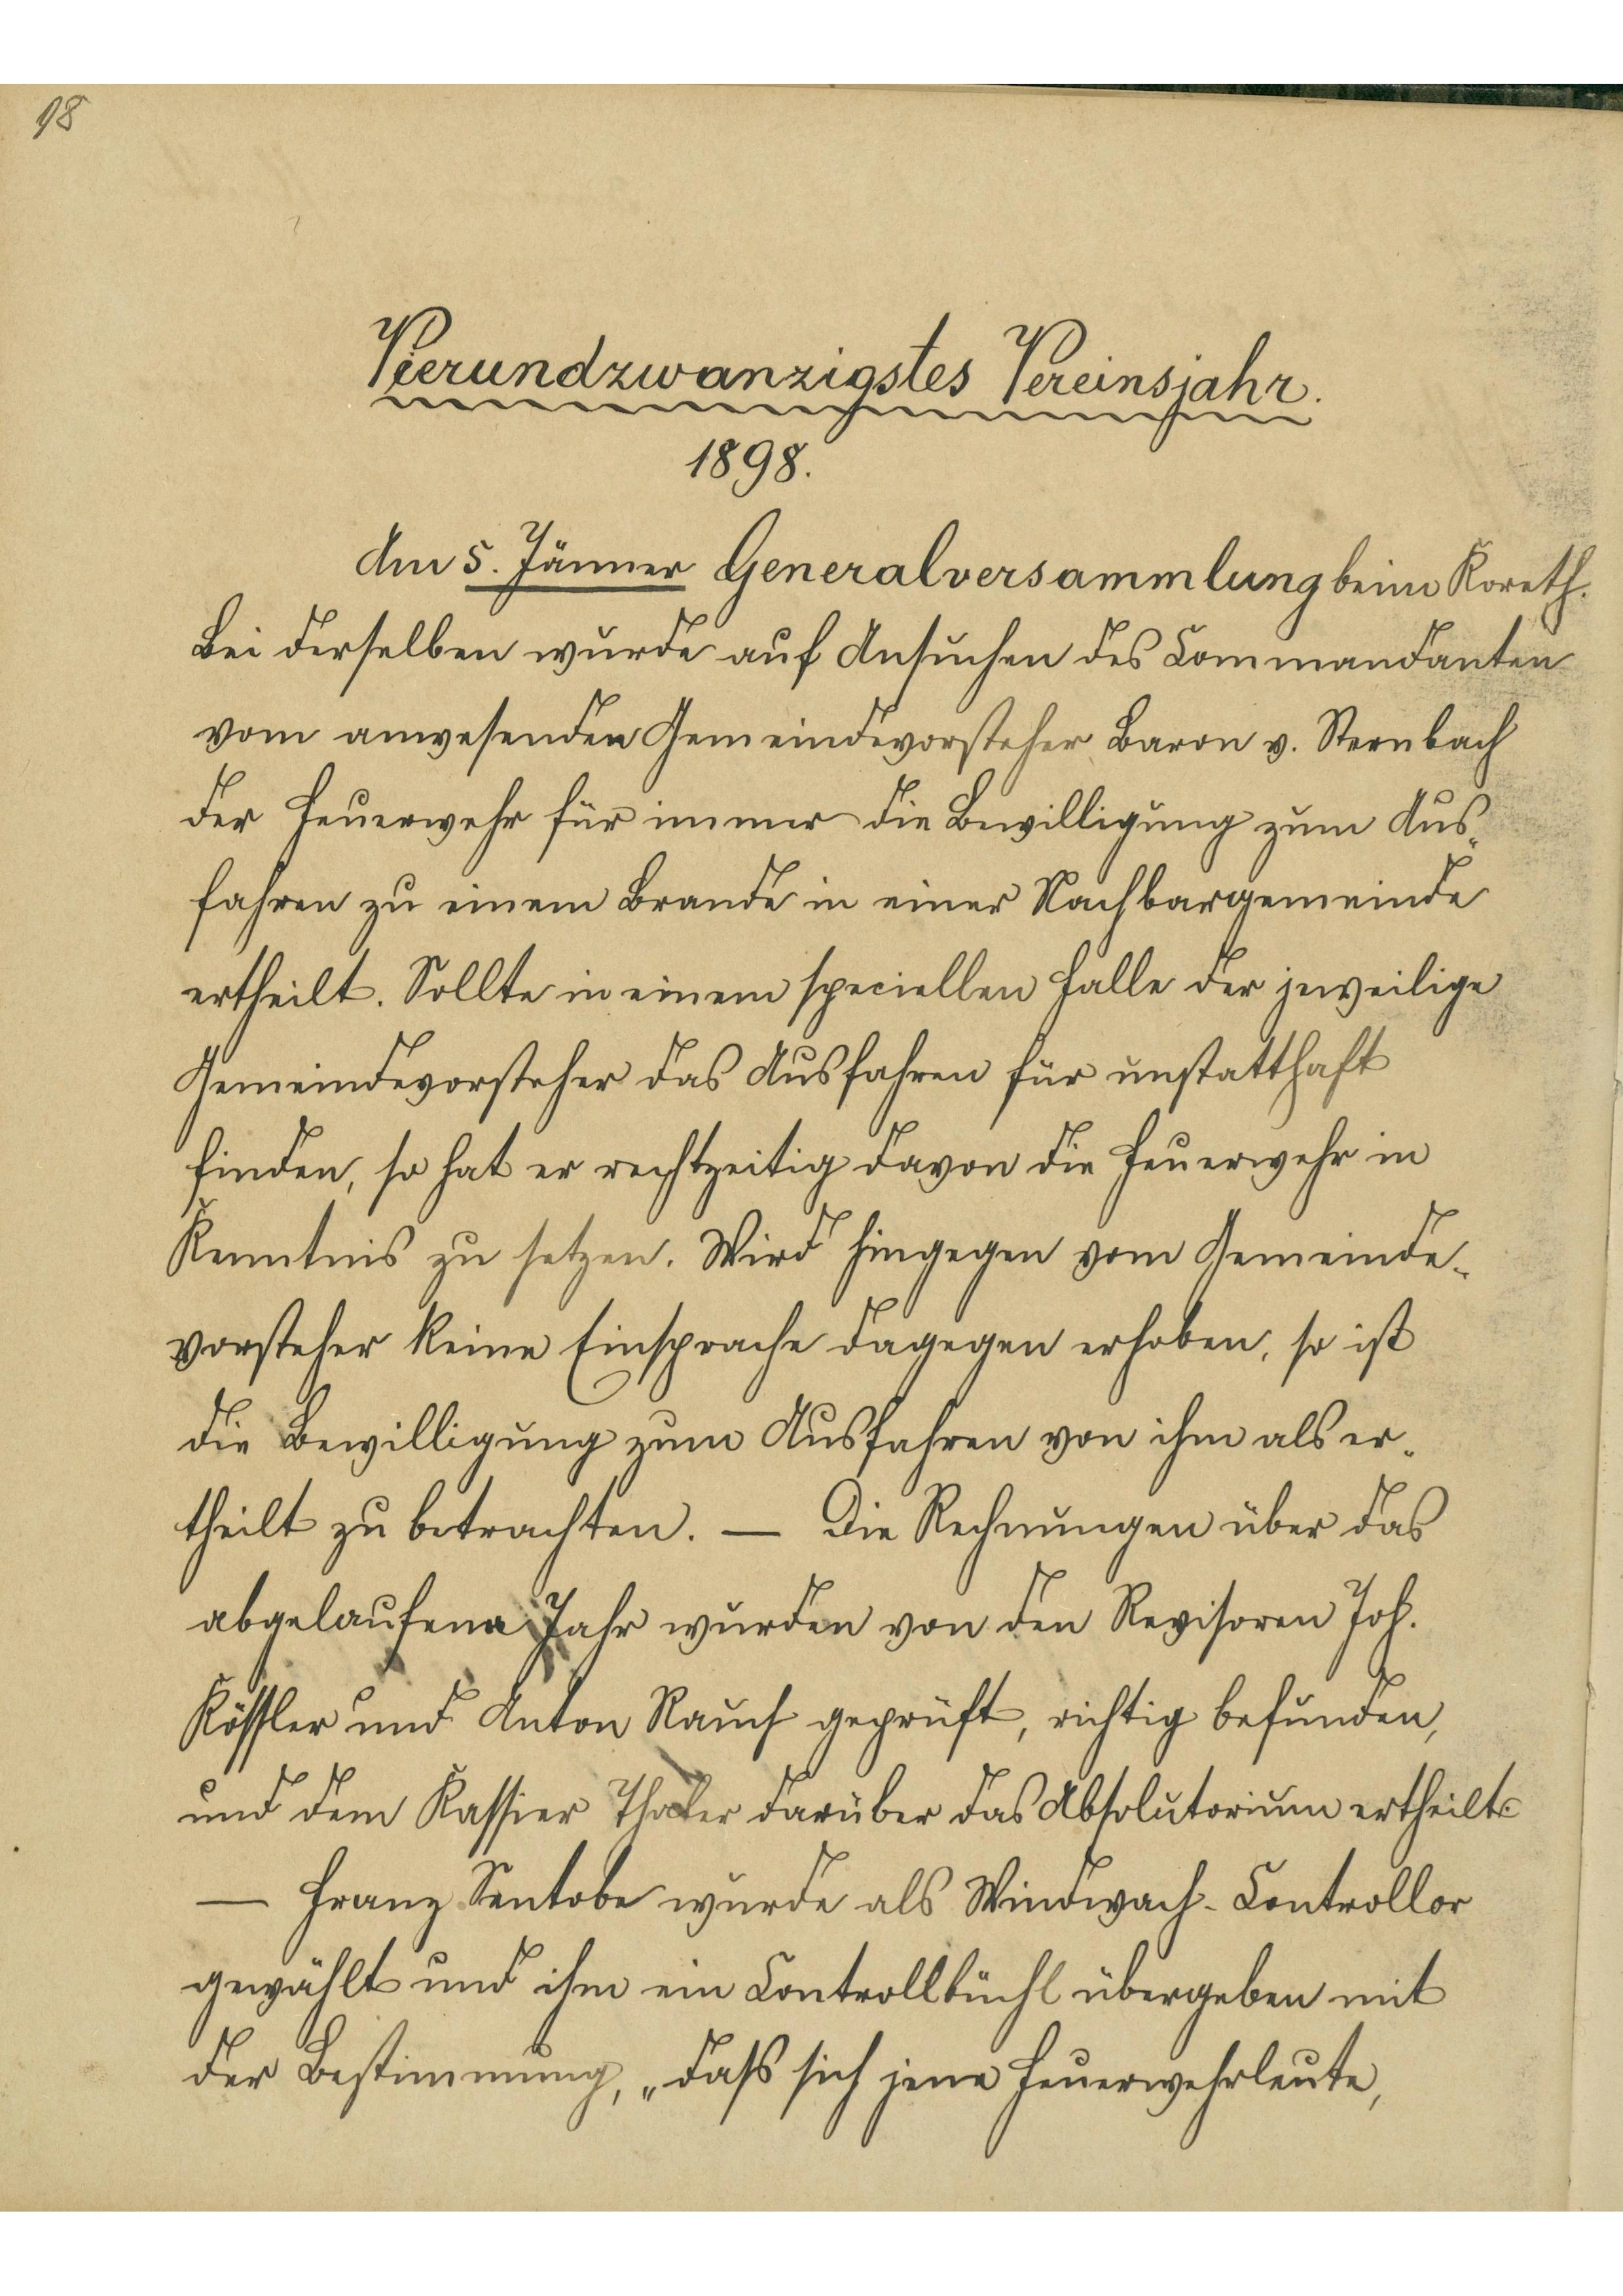 98
Vierundzwanzigstes Vereinsjahr.
1898.
Am 5. Jänner Generalversammlung beim Koreth.
Bei derselben wurde auf Ansuchen des Commandanten
vom anwesenden Gemeindevorsteher Baron v. Sternbach
der Feuerwehr für immer die Bewilligung zum Aus-
fahren zu einem Brande in einer Nachbargemeinde
ertheilt. Sollte in einem speciellen Falle der jeweilige
Gemeindevorsteher das Ausfahren für unstatthaft
finden, so hat er rechtzeitig davon die Feuerwehr in
Kenntnis zu setzen. Wird hingegen vom Gemeinde-
vorsteher keine Einsprache dagegen erhoben, so ist
die Bewilligung zum Ausfahren von ihm als er-
theilt zu betrachten. — Die Rechnungen über das
abgelaufene Jahr wurden von den Revisoren Joh.
Kössler und Anton Rauch geprüft, richtig befunden,
und dem Kassier Thaler darüber das Absolutorium ertheilt.
— Franz Sentobe wurde als Windwach-Controllor
gewählt und ihm ein Controllbüchl übergeben mit
der Bestimmung, „dass sich jene Feuerwehrleute,